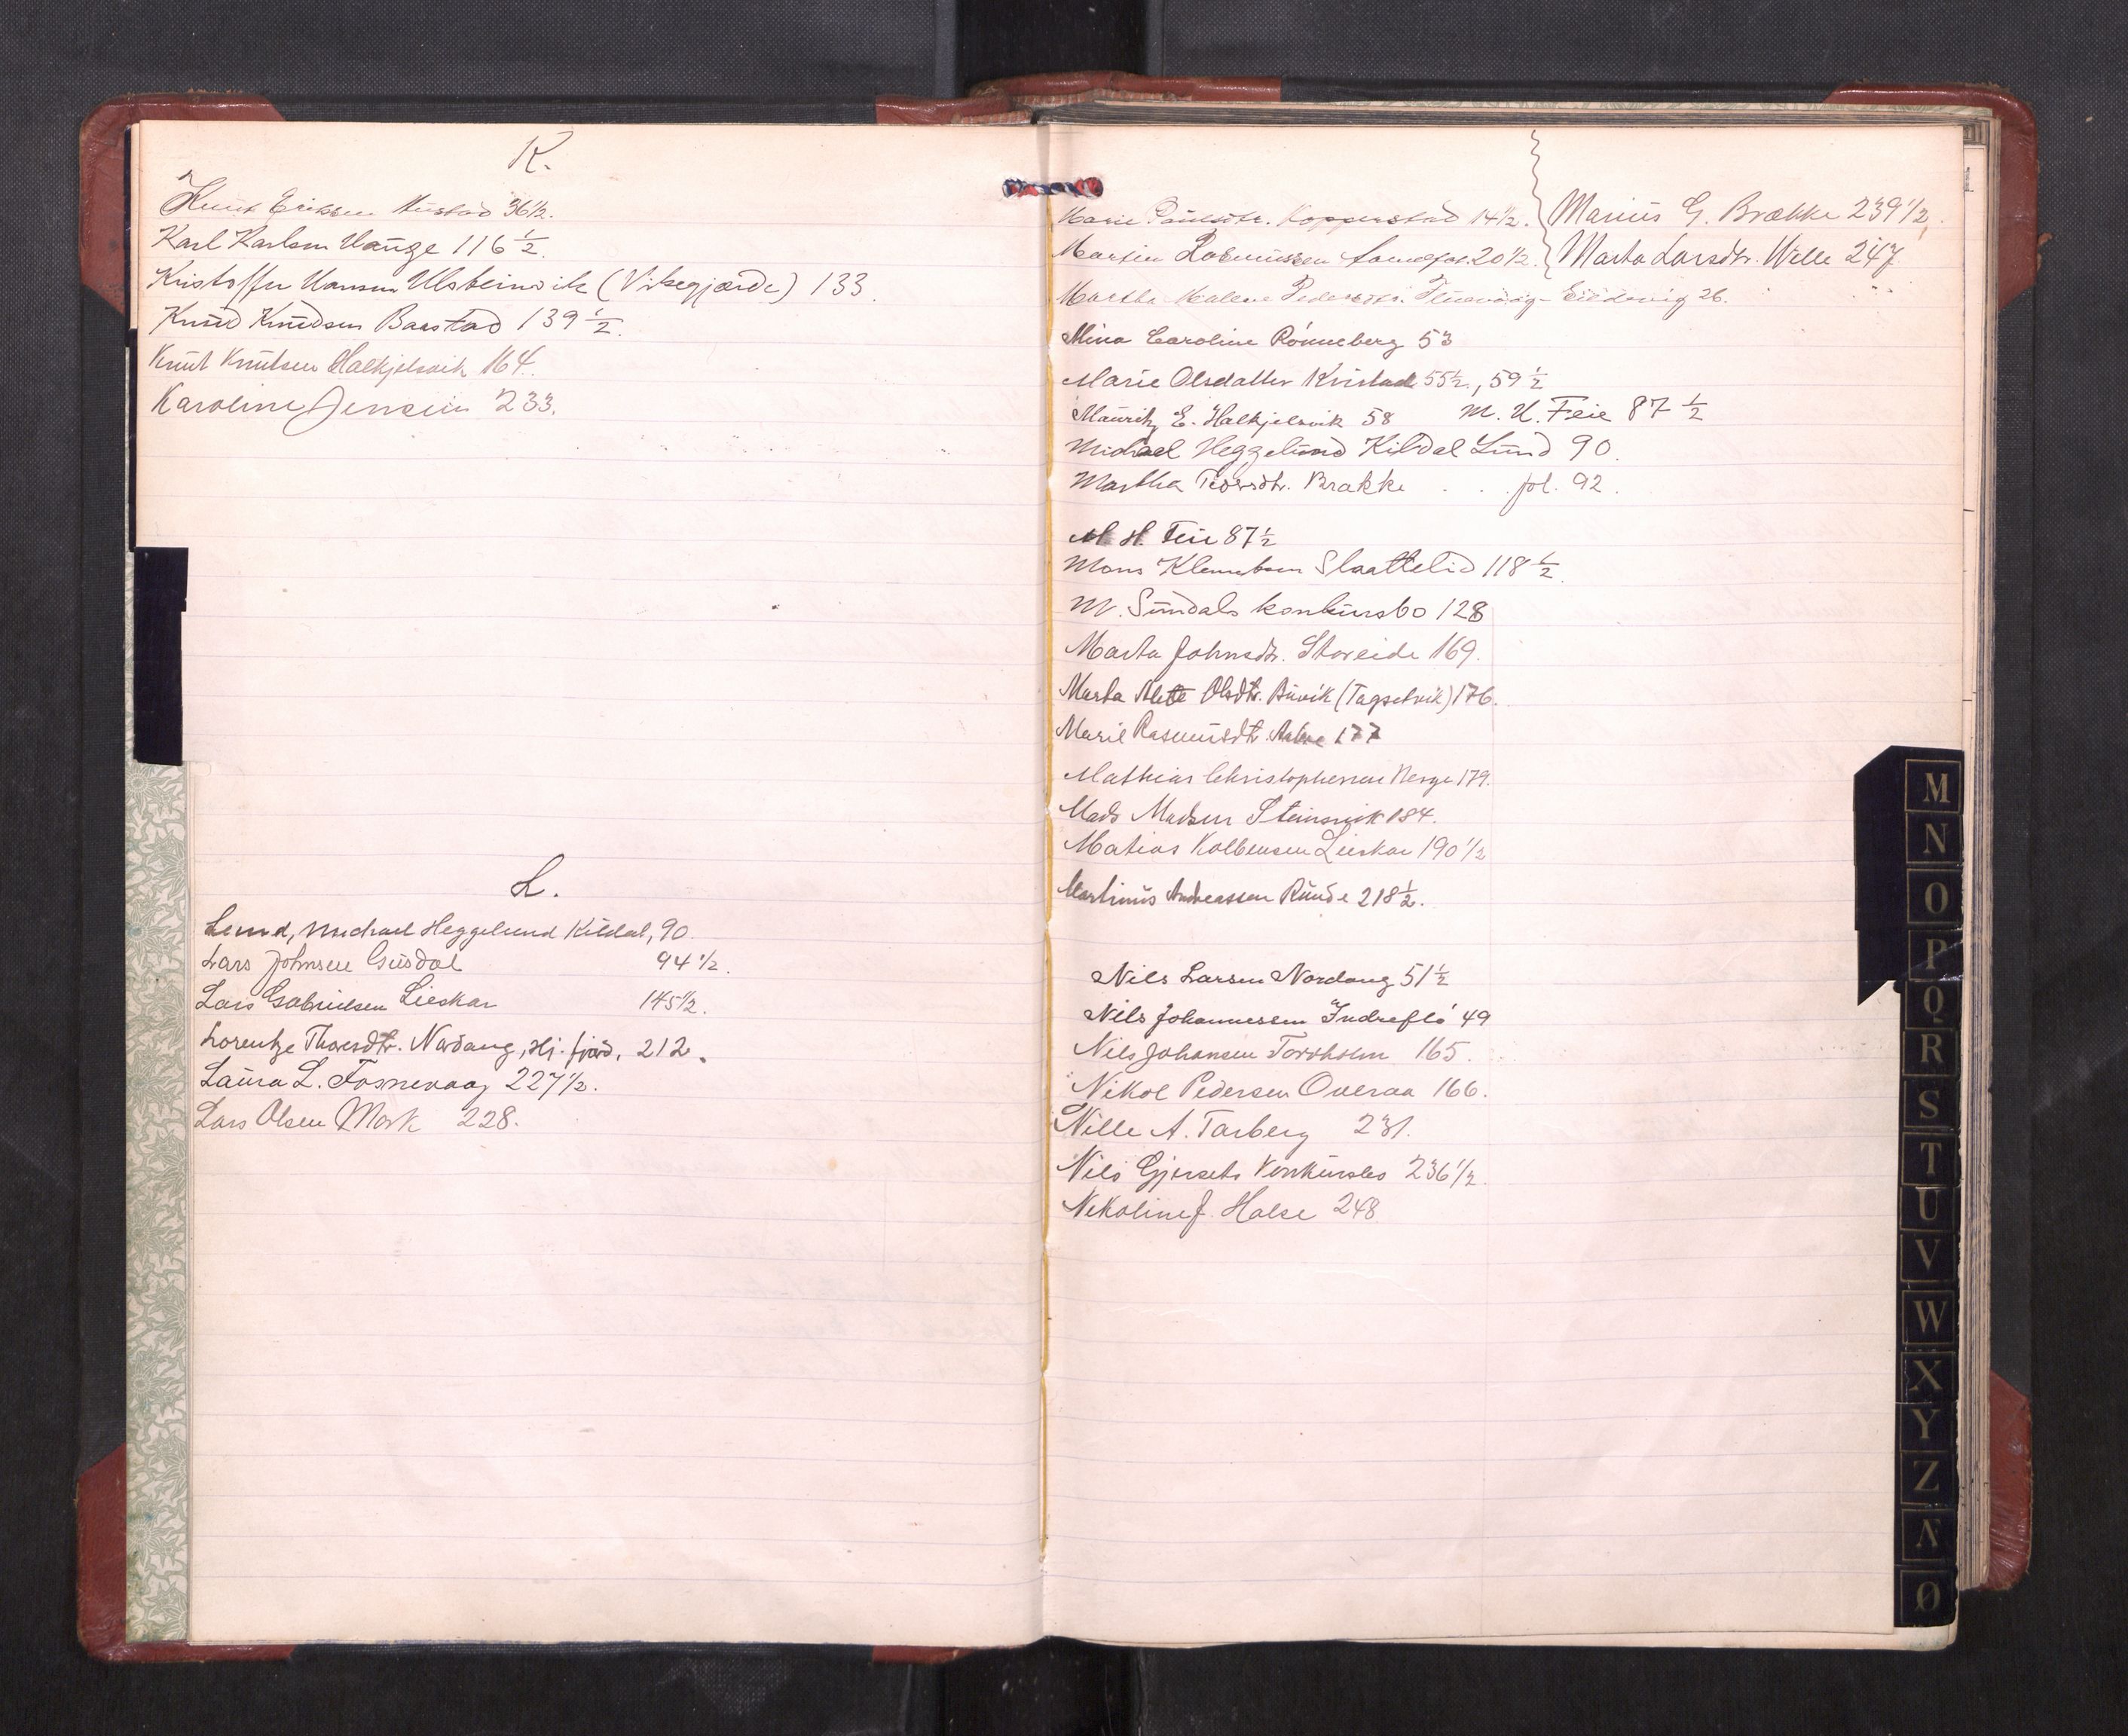 K.
Knut Eriksen Mustad 36 1/2.
Karl Karlsen Hauge 116 1/2.
Kristoffer Hansen Ulsteinvik (Viksegjærde) 133.
Knud Knudsen Baastad 139 1/2.
Knut Knutsen Halkjelsvik 164.
Karoline Jensen 233.
L.
Lund, Michael Heggelund Kildal, 90.
Lars Johnsen Gusdal 94 1/2.
Lars Gabrielsen Lieskar 145 1/2.
Lorentze Thoresdtr. Nordang, Hj. fjord, 212.
Laura L. Fosnevaag 227 1/2.
Lars Olsen Mork 228.
Marie Paulsdtr. Kopperstad 14 1/2.
Martin Rasmussen 20 1/2.
Martha Malene Pedersdtr. 26.
Mina Caroline Rønneberg 53
Marie Olsdatter Kvistad 55 1/2, 59 1/2
Mauritz E. Halkjelsvik 58 M. H. Feie 87 1/2
Michael Heggelund Kildal Lund 90.
Martha Brække . . fol. 92.
M. H. Feie 87 1/2
Mons Klemetsen Slaattelid 118 1/2.
M. Sundals konkursbo 128
Marta Johnsdtr. Storeide 169.
Marta Alette Olsdtr. Buvik 176.
Marie Rasmusdtr. 177
Mathias Christophersen Berge 179.
Mads Madsen Steinsvik 184.
Matias Kolbensen Lieskar 190 1/2
Martinus Andreassen Runde 218 1/2.
Marius G. Brække 239 1/2.
Marta Larsdtr. Welle 247.
Nils Larsen Nordang 51 1/2
Nils Johannessen Indreflø 49
Nils Johansen Torvholm 165.
Nikol Pedersen Overaa 166.
Nille A. Tarberg 231.
Nils Gjersets Konkursbo 236 1/2.
Nekoline J. Halse 248
M
N
O
P
Q
R
S
T
U
V
W
X
Y
Z
Ø